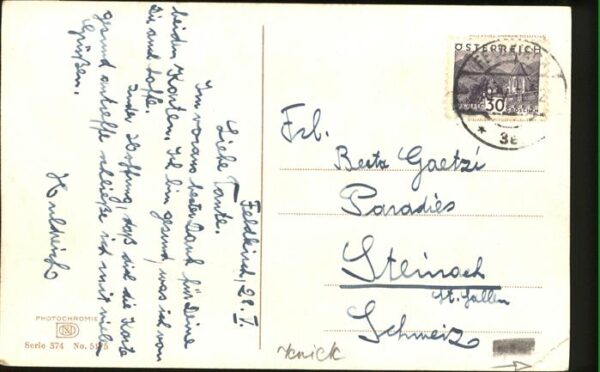 Feldkirch, 29. I.
Liebe Tante.
Im voraus besten Dank für Deine
beiden Karten. Ich bin gesund was ich von
Dir auch hoffe.
In der Hoffnung, daß sich die Karte
gesund antreffe schließe ich mit vielen
Grüßen.
Huldreich
PHOTOCHROMIE
Serie 374 No. 5175
ÖSTERREICH
30
Frl.
Berta Gaetzi
Paradies
Steinach
St. Gallen
Schweiz
Knick